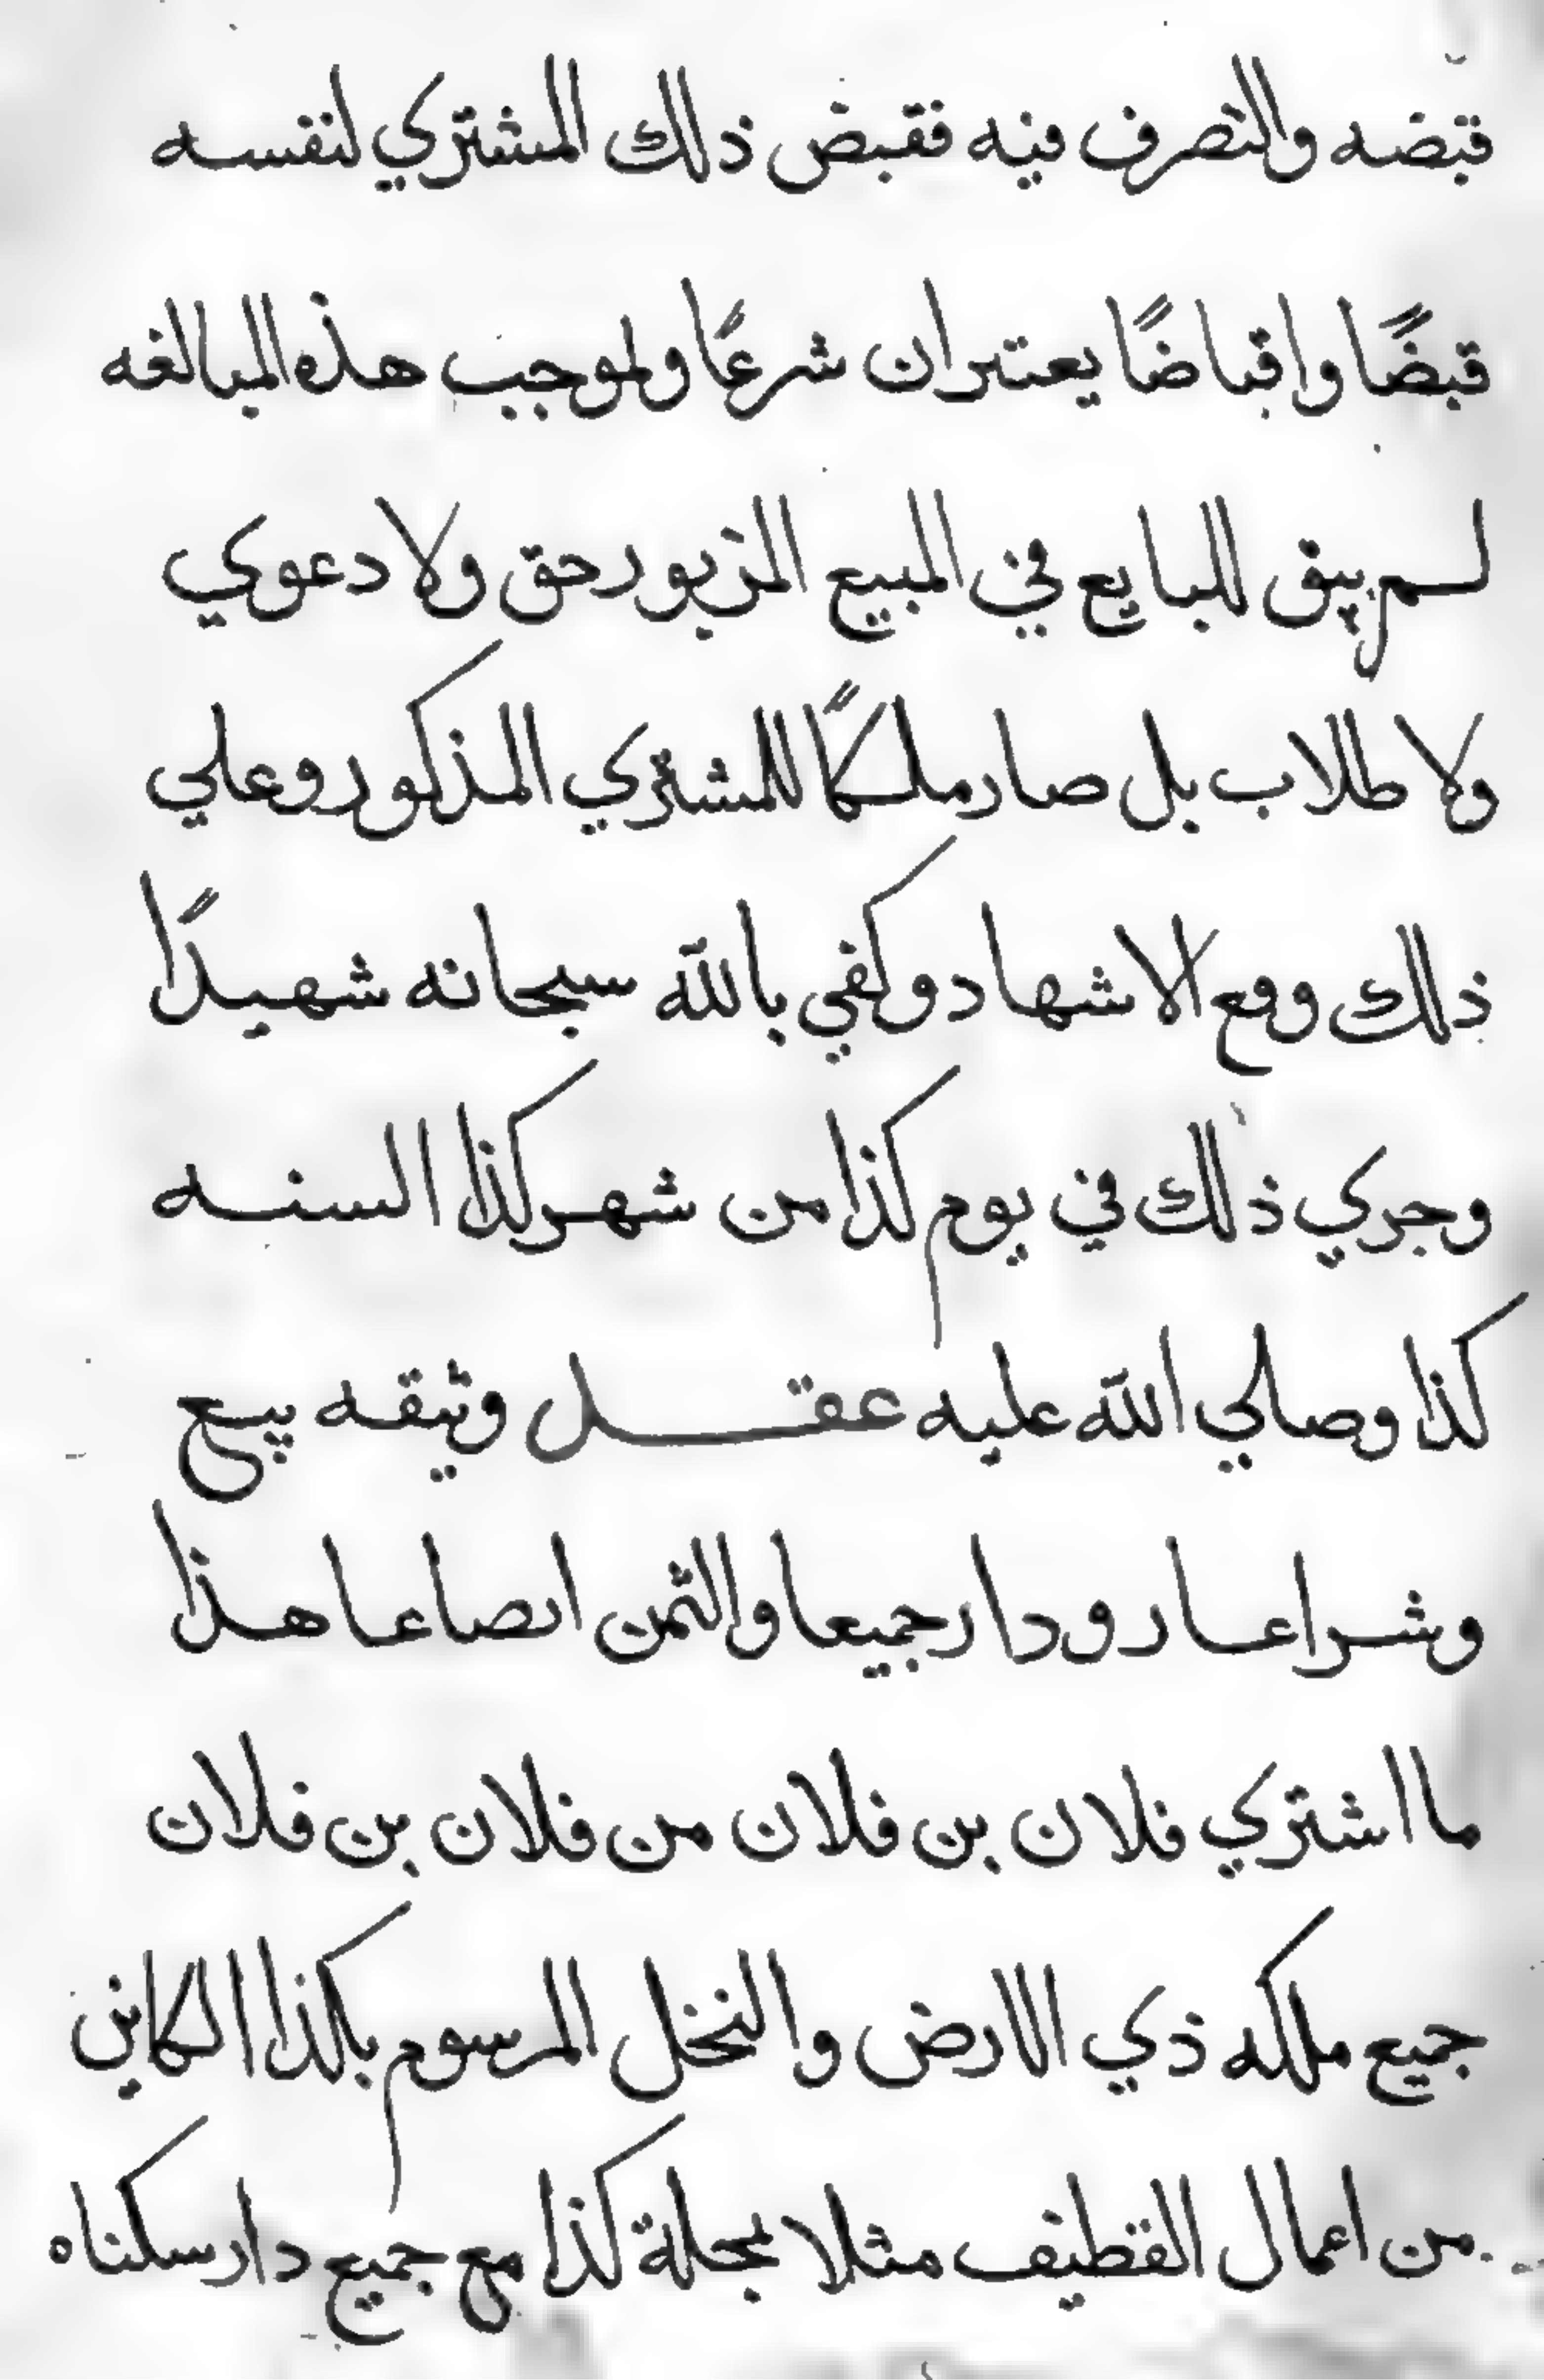 قبضه والتصرف فيه فقبض ذلك المشتري لنفسه
قبضًا واقباضًا يعتبران شرعًا ولموجب هذه المبالغه
لم يبق للبايع في المبيع المزبور حق ولا دعوي
ولا طلاب بل صار ملكًا للمشتري المذكور وعلي
ذلك وقع الاشهاد وكفي بالله سبحانه شهيدًا
وجري ذلك في يوم كذا من شهر كذا السنه
كذا وصلي الله عليه عقل وثيقه بيع
وشرا عار ودار جميعا والثمن ايضا عا هذا
ما اشتري فلان بن فلان من فلان بن فلان
جميع ملكه ذي الارض والنخل المرسوم بكذا الكاين
من اعمال القطيف مثلا بمحلة كذا مع جميع دار سكناه